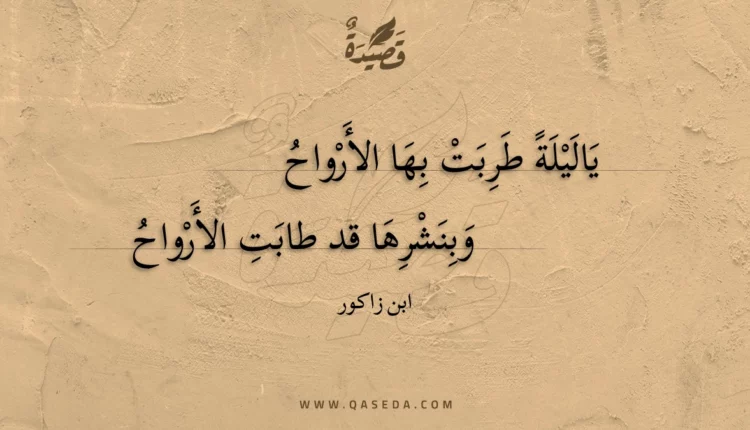 قَصِيْدَةٌ
يَالَيْلَةً طَرِبَتْ بِهَا الأَرْواحُ
وَبِنَشْرِهَا قد طابَتِ الأَرْواحُ
ابن زاكور
WWW.QASEDA.COM